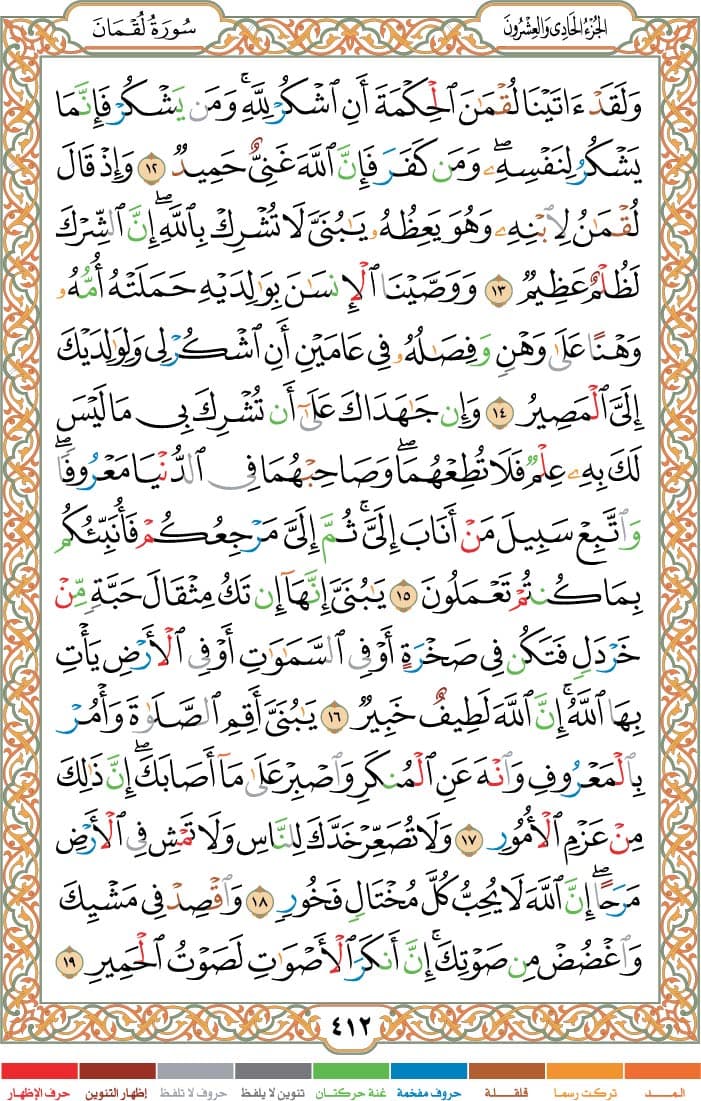 الجُزْءُ الحَادِى وَالعِشْرُونَ
سُورَةُ لُقْمَانَ
وَلَقَدْ ءَاتَيْنَا لُقْمَٰنَ ٱلْحِكْمَةَ أَنِ ٱشْكُرْ لِلَّهِ ۚ وَمَن يَشْكُرْ فَإِنَّمَا
يَشْكُرُ لِنَفْسِهِۦ ۖ وَمَن كَفَرَ فَإِنَّ ٱللَّهَ غَنِىٌّ حَمِيدٌ ١٢ وَإِذْ قَالَ
لُقْمَٰنُ لِٱبْنِهِۦ وَهُوَ يَعِظُهُۥ يَٰبُنَىَّ لَا تُشْرِكْ بِٱللَّهِ ۖ إِنَّ ٱلشِّرْكَ
لَظُلْمٌ عَظِيمٌ ١٣ وَوَصَّيْنَا ٱلْإِنسَٰنَ بِوَٰلِدَيْهِ حَمَلَتْهُ أُمُّهُۥ
وَهْنًا عَلَىٰ وَهْنٍ وَفِصَٰلُهُۥ فِى عَامَيْنِ أَنِ ٱشْكُرْ لِى وَلِوَٰلِدَيْكَ
إِلَىَّ ٱلْمَصِيرُ ١٤ وَإِن جَٰهَدَاكَ عَلَىٰٓ أَن تُشْرِكَ بِى مَا لَيْسَ
لَكَ بِهِۦ عِلْمٌ فَلَا تُطِعْهُمَا ۖ وَصَاحِبْهُمَا فِى ٱلدُّنْيَا مَعْرُوفًا ۖ
وَٱتَّبِعْ سَبِيلَ مَنْ أَنَابَ إِلَىَّ ۚ ثُمَّ إِلَىَّ مَرْجِعُكُمْ فَأُنَبِّئُكُم
بِمَا كُنتُمْ تَعْمَلُونَ ١٥ يَٰبُنَىَّ إِنَّهَآ إِن تَكُ مِثْقَالَ حَبَّةٍ مِّنْ
خَرْدَلٍ فَتَكُن فِى صَخْرَةٍ أَوْ فِى ٱلسَّمَٰوَٰتِ أَوْ فِى ٱلْأَرْضِ يَأْتِ
بِهَا ٱللَّهُ ۚ إِنَّ ٱللَّهَ لَطِيفٌ خَبِيرٌ ١٦ يَٰبُنَىَّ أَقِمِ ٱلصَّلَوٰةَ وَأْمُرْ
بِٱلْمَعْرُوفِ وَٱنْهَ عَنِ ٱلْمُنكَرِ وَٱصْبِرْ عَلَىٰ مَآ أَصَابَكَ ۖ إِنَّ ذَٰلِكَ
مِنْ عَزْمِ ٱلْأُمُورِ ١٧ وَلَا تُصَعِّرْ خَدَّكَ لِلنَّاسِ وَلَا تَمْشِ فِى ٱلْأَرْضِ
مَرَحًا ۖ إِنَّ ٱللَّهَ لَا يُحِبُّ كُلَّ مُخْتَالٍ فَخُورٍ ١٨ وَٱقْصِدْ فِى مَشْيِكَ
وَٱغْضُضْ مِن صَوْتِكَ ۚ إِنَّ أَنكَرَ ٱلْأَصْوَٰتِ لَصَوْتُ ٱلْحَمِيرِ ١٩
٤١٢
المــد تركت رسما قلقلة حروف مفخمة غنة حركتان تنوين لا يلفظ حروف لا تلفظ إظهار التنوين حرف الإظهار